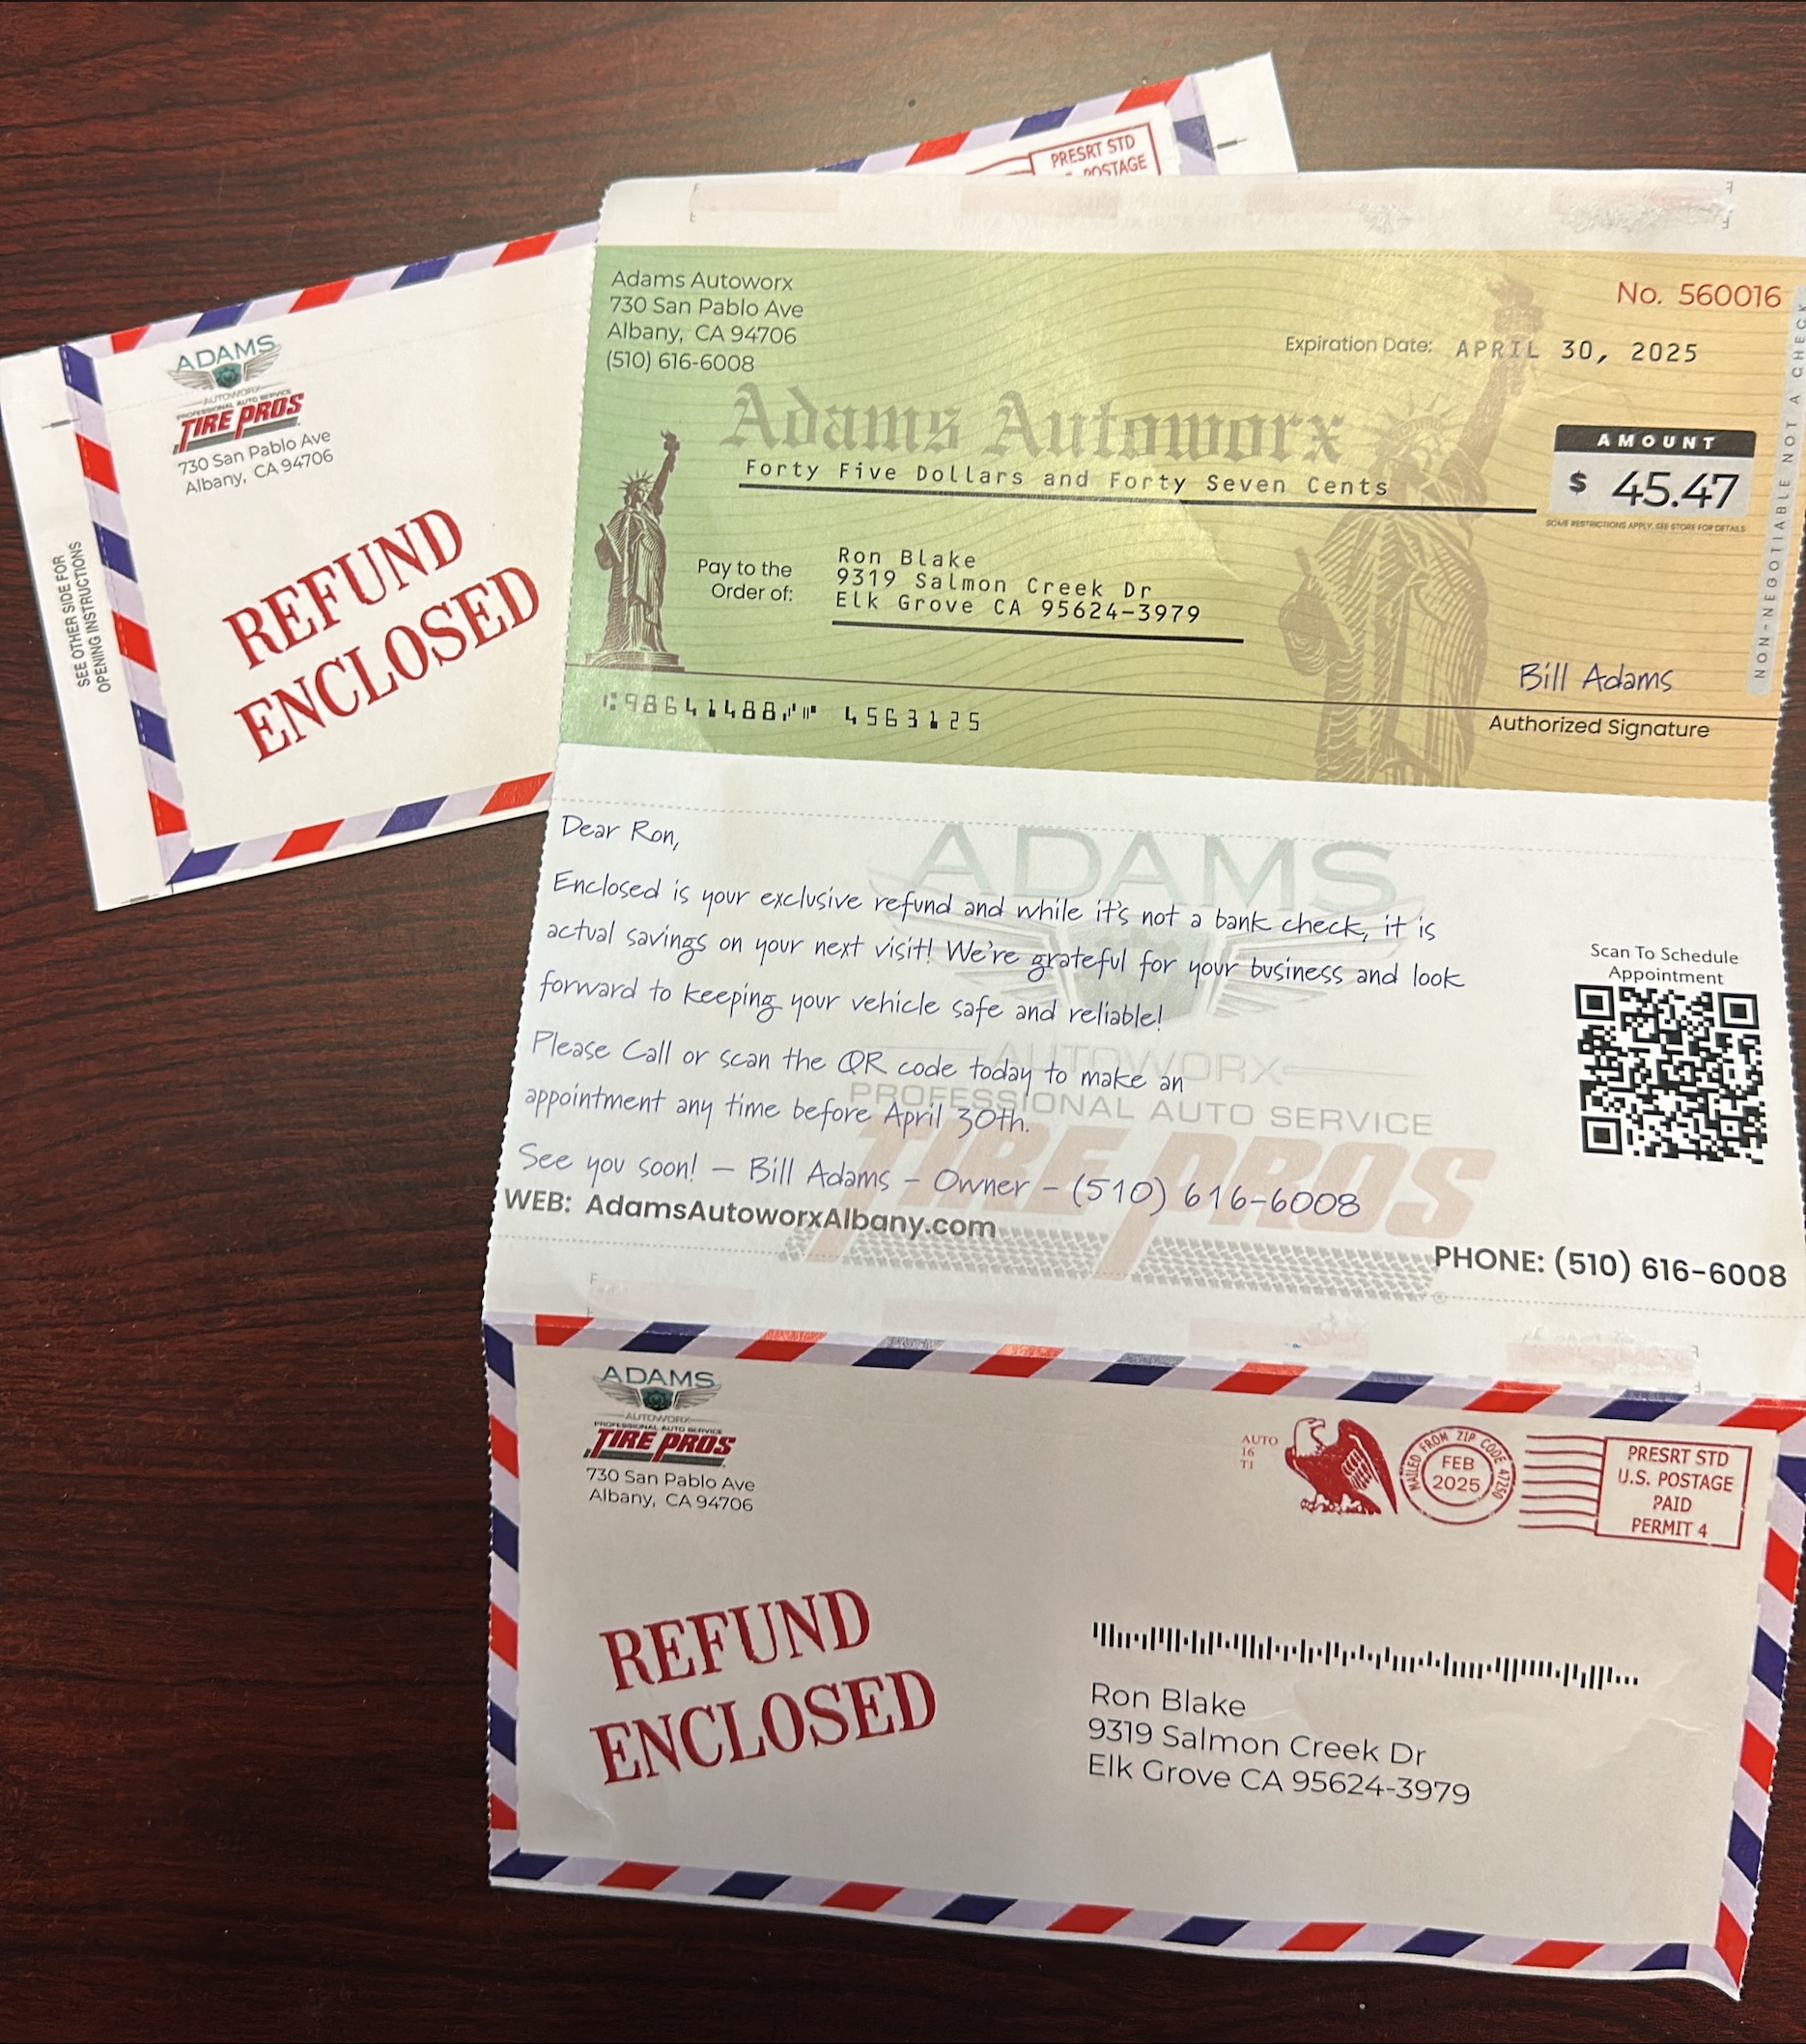 PRESRT STD
POSTAGE
ADAMS
AUTOWORX
PROFESSIONAL AUTO SERVICE
TIRE PROS
730 San Pablo Ave
Albany, CA 94706
SEE OTHER SIDE FOR
OPENING INSTRUCTIONS
REFUND
ENCLOSED
Adams Autoworx
730 San Pablo Ave
Albany, CA 94706
(510) 616-6008
No. 560016
Expiration Date: APRIL 30, 2025
Adams Autoworx
Forty Five Dollars and Forty Seven Cents
AMOUNT
$ 45.47
SOME RESTRICTIONS APPLY. SEE STORE FOR DETAILS
NON-NEGOTIABLE NOT A CHECK
Pay to the
Order of:
Ron Blake
9319 Salmon Creek Dr
Elk Grove CA 95624-3979
Bill Adams
Authorized Signature
98641488 4563125
Dear Ron,
Enclosed is your exclusive refund and while it's not a bank check, it is
actual savings on your next visit! We're grateful for your business and look
forward to keeping your vehicle safe and reliable!
Please Call or scan the QR code today to make an
appointment any time before April 30th.
See you soon! – Bill Adams – Owner – (510) 616-6008
ADAMS
AUTOWORX
PROFESSIONAL AUTO SERVICE
TIRE PROS
Scan To Schedule
Appointment
WEB: AdamsAutoworxAlbany.com
PHONE: (510) 616-6008
ADAMS
AUTOWORX
PROFESSIONAL AUTO SERVICE
TIRE PROS
730 San Pablo Ave
Albany, CA 94706
AUTO
16
T1
MAILED FROM ZIP CODE 47250
FEB
2025
PRESRT STD
U.S. POSTAGE
PAID
PERMIT 4
REFUND
ENCLOSED
Ron Blake
9319 Salmon Creek Dr
Elk Grove CA 95624-3979